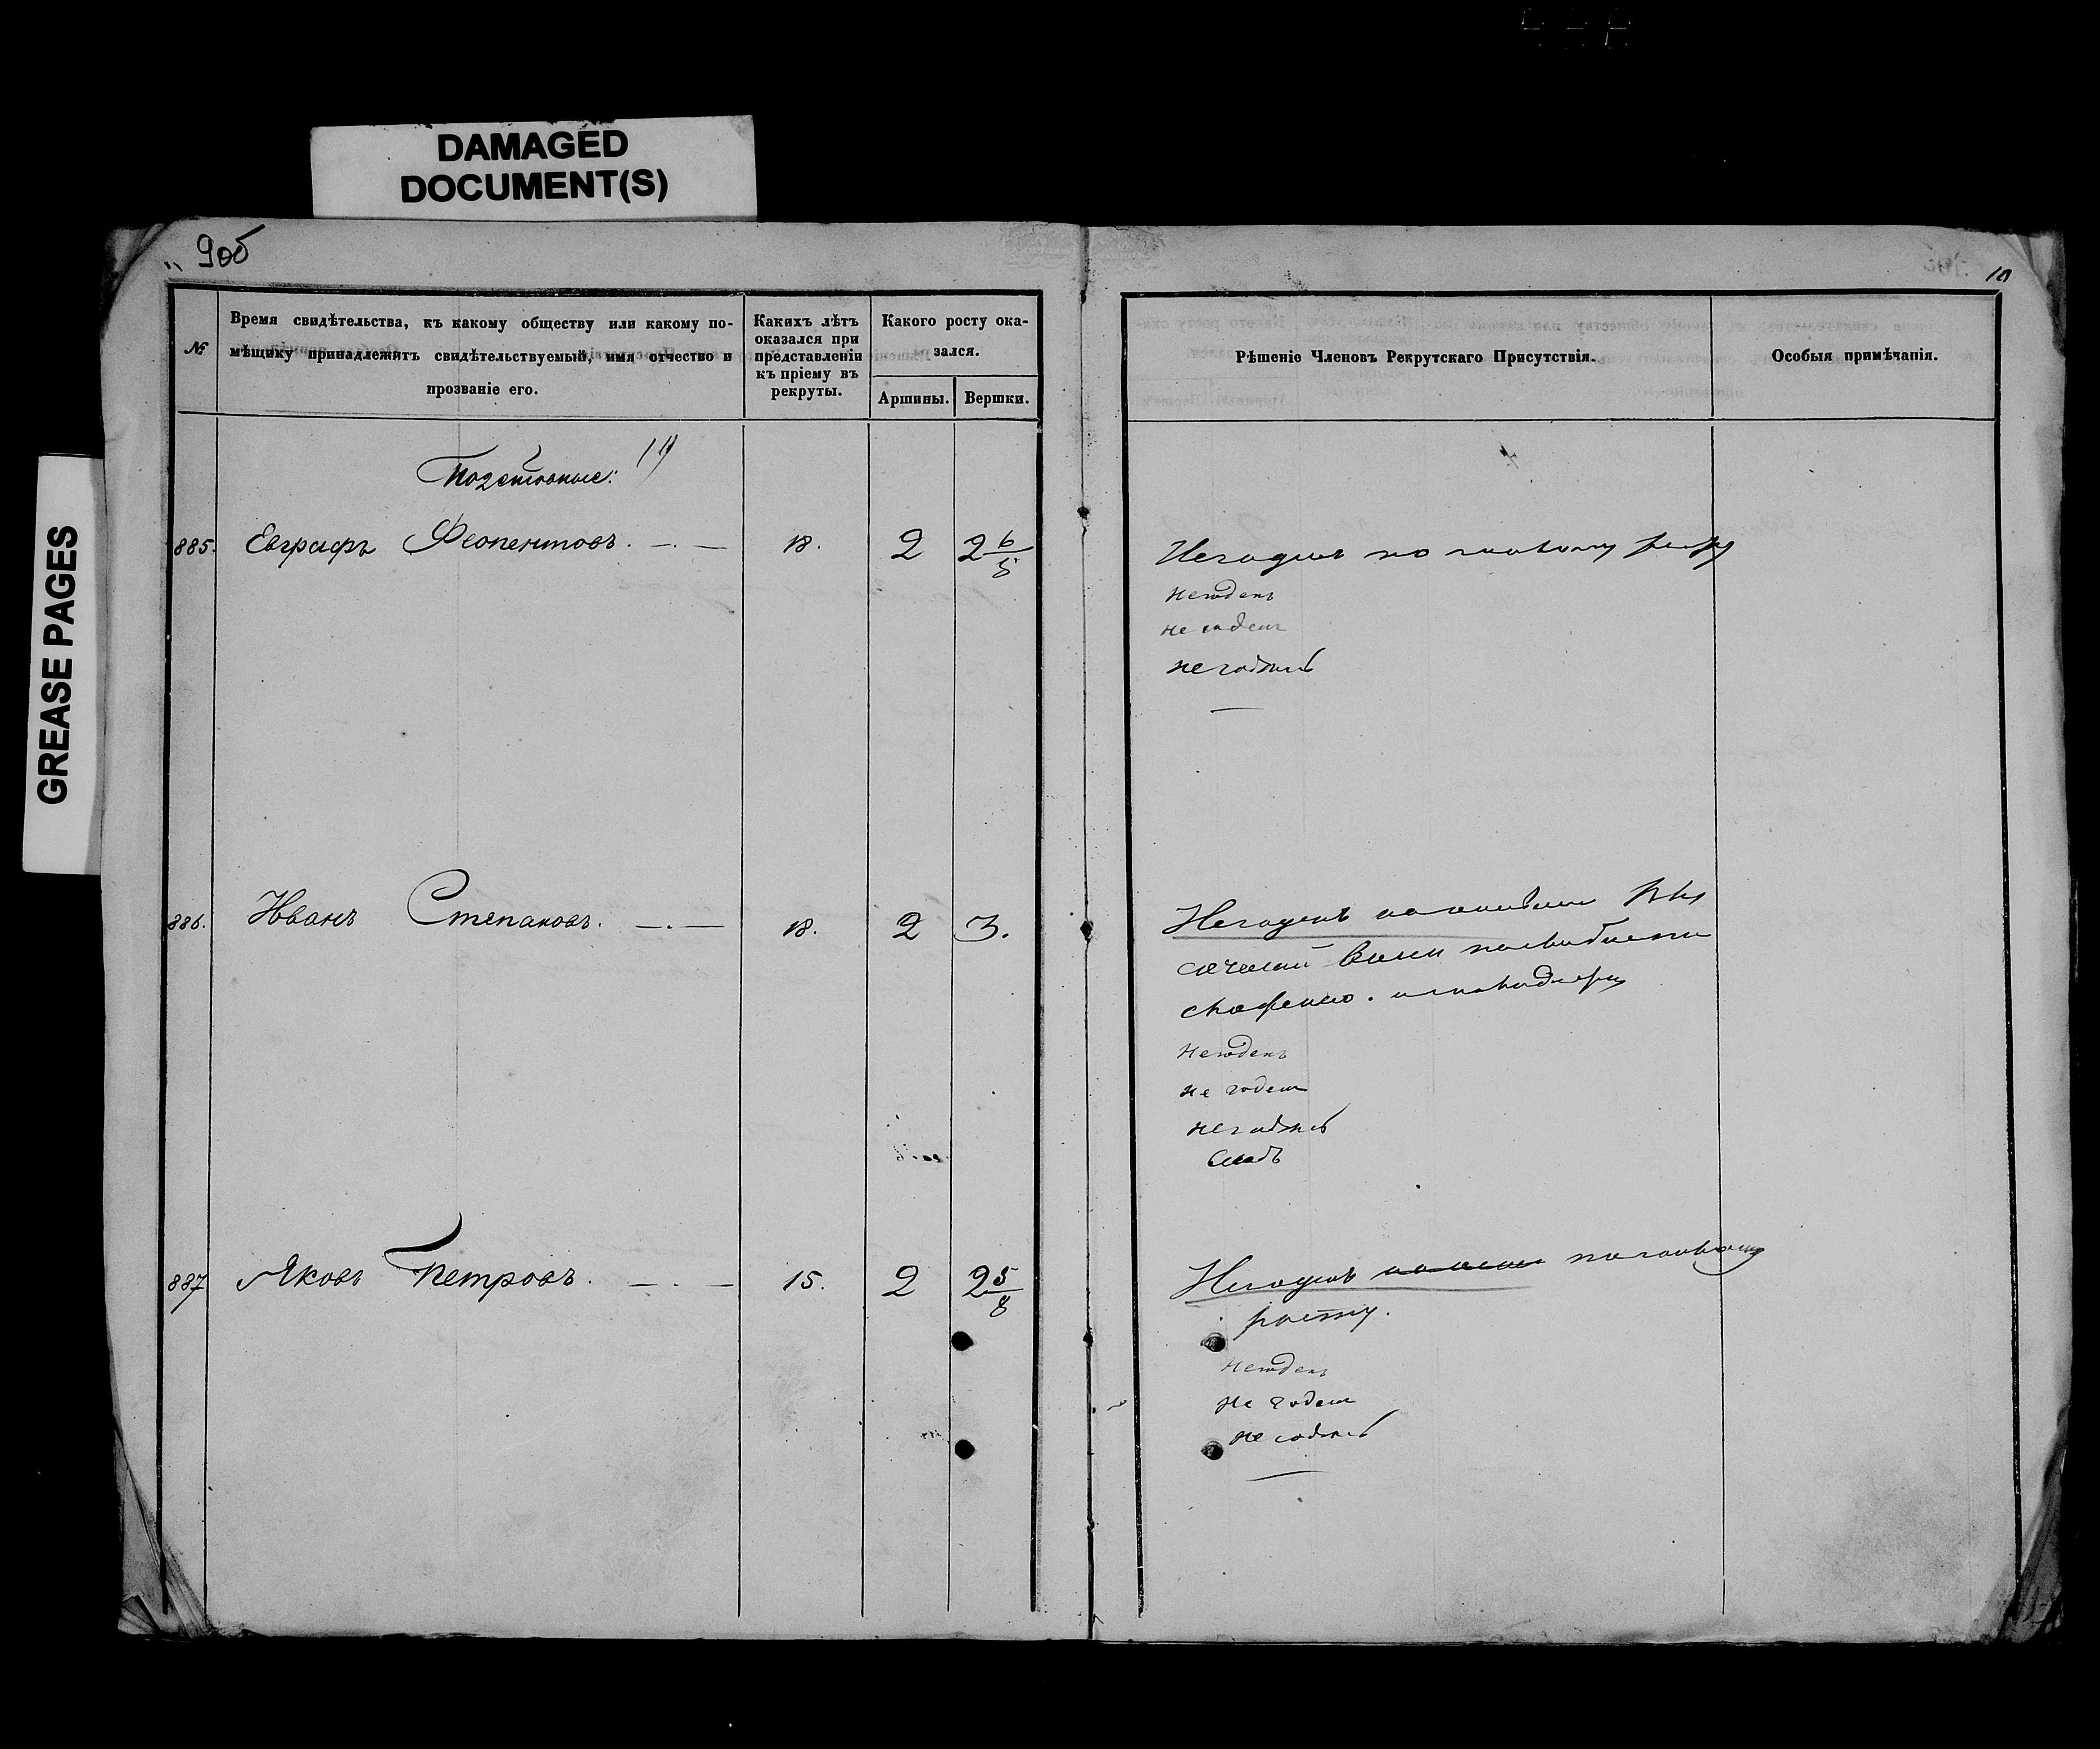 DAMAGED
DOCUMENT(S)
GREASE PAGES
9об
10
№
Время свидѣтельства, къ какому обществу или какому по-
мѣщику принадлежитъ свидѣтельствуемый, имя отчество и
прозваніе его.
Какихъ лѣтъ
оказался при
представленіи
къ пріему въ
рекруты.
Какого росту ока-
зался.
Аршины.
Вершки.
Рѣшеніе Членовъ Рекрутскаго Присутствія.
Особыя примѣчанія.
885. Евграфъ Феопентовъ. 18. 2 2 6/8
Негоденъ по малому росту
негоденъ
не годенъ
негоденъ
886. Иванъ Степановъ. 18. 2 3.
Негоденъ
негоденъ
не годенъ
негоденъ
887 Яковъ Петровъ. 15. 2 2 5/8
Негоденъ по малому
росту.
негоденъ
не годенъ
не годенъ